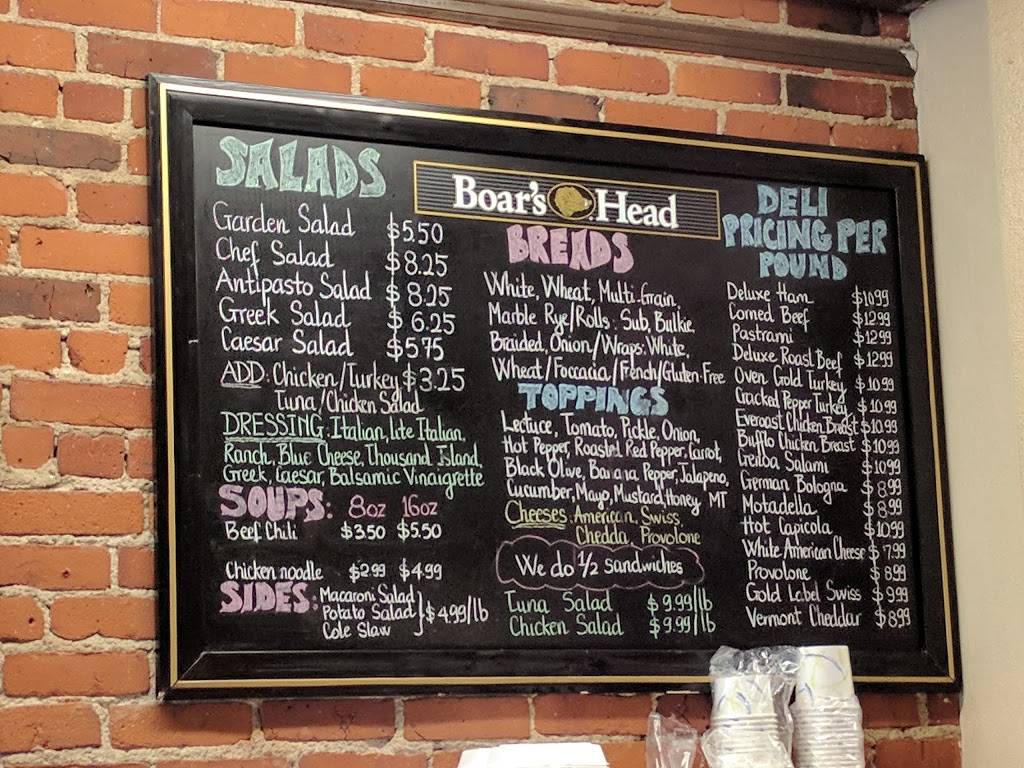 SALADS
Garden Salad $5.50
Chef Salad $8.25
Antipasto Salad $8.25
Greek Salad $6.25
Caesar Salad $5.75
ADD: Chicken/Turkey $3.25
Tuna/Chicken Salad
DRESSING: Italian, Lite Italian,
Ranch, Blue Cheese, Thousand Island,
Greek, Caesar, Balsamic Vinaigrette
SOUPS: 8oz 16oz
Beef Chili $3.50 $5.50
Chicken noodle $2.99 $4.99
SIDES: Macaroni Salad
Potato Salad } $4.99/lb
Cole Slaw
Boar's Head
BREADS
White, Wheat, Multi-Grain,
Marble Rye/Rolls: Sub, Bulkie
Braided, Onion/Wraps: White,
Wheat/Foccacia/French/Gluten-Free
TOPPINGS
Lectuce, Tomato, Pickle, Onion,
Hot Pepper, Roasted Red Pepper, Carrot,
Black Olive, Banana Pepper, Jalapeno,
Cucumber, Mayo, Mustard, Honey MT
Cheeses: American, Swiss,
Chedda, Provolone
We do 1/2 sandwiches
Tuna Salad $9.99/lb
Chicken Salad $9.99/lb
DELI
PRICING PER
POUND
Deluxe Ham $10.99
Corned Beef $12.99
Pastrami $12.99
Deluxe Roast Beef $12.99
Oven Gold Turkey $10.99
Cracked Pepper Turkey $10.99
Everoast Chicken Breast $10.99
Bufflo Chicken Breast $10.99
Genoa Salami $10.99
German Bologna $8.99
Motadella $8.99
Hot Capicola $10.99
White American Cheese $7.99
Provolone $8.99
Gold Label Swiss $9.99
Vermont Cheddar $8.99